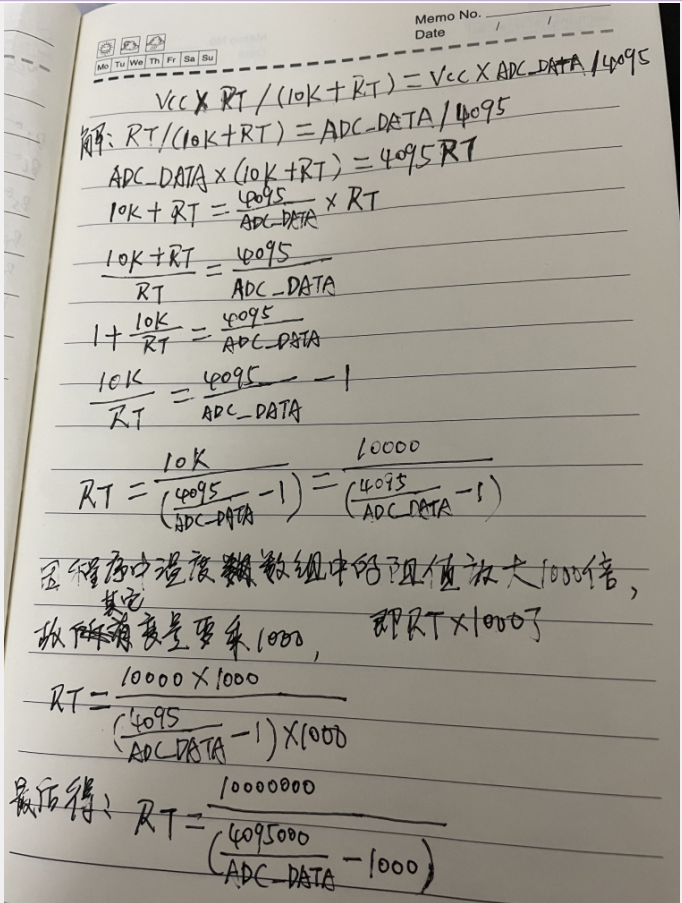 Memo No.
Date / /
Mo Tu We Th Fr Sa Su
Vcc X RT / (10K + RT) = Vcc X ADC_DATA / 4095
解: RT / (10K + RT) = ADC_DATA / 4095
ADC_DATA × (10K + RT) = 4095 RT
10K + RT = 4095 / ADC_DATA × RT
10K + RT / RT = 4095 / ADC_DATA
1 + 10K / RT = 4095 / ADC_DATA
10K / RT = 4095 / ADC_DATA - 1
RT = 10K / (4095 / ADC_DATA - 1) = 10000 / (4095 / ADC_DATA - 1)
因程序中温度数组中的阻值放大1000倍,
即RT×1000了
故其它变量要乘1000,
RT = 10000 × 1000 / (4095 / ADC_DATA - 1) × 1000
最后得: RT = 10000000 / (4095000 / ADC_DATA - 1000)